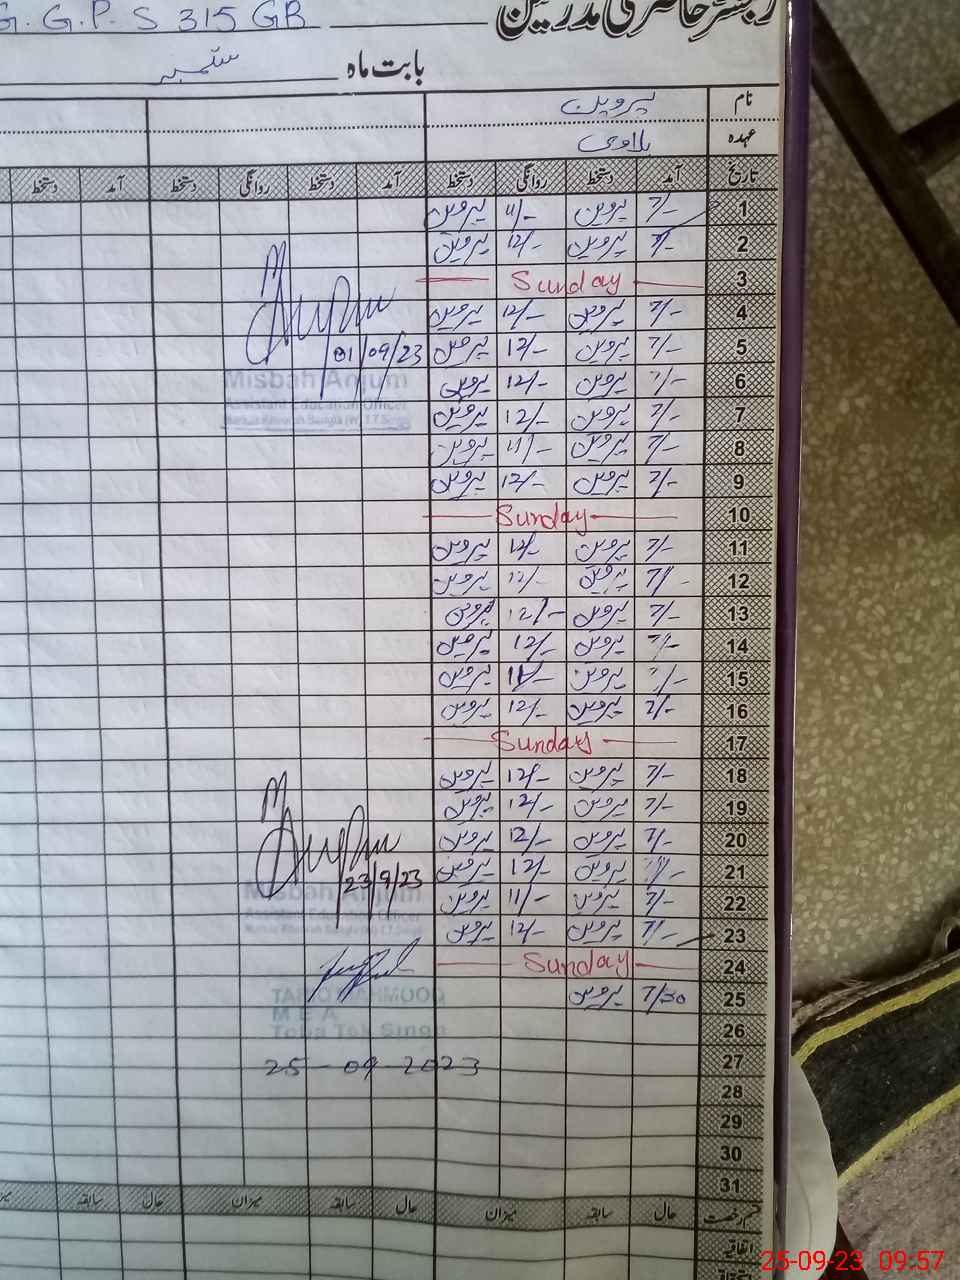 G. G. P. S 315 GB رجسٹر حاضری مدرسین
بابت ماہ ستمبر
نام پروین
عہدہ
تاریخ آمد دستخط روانگی دستخط آمد دستخط روانگی دستخط آمد دستخط
1 7/- پروین 11/- پروین
2 7/- پروین 12/- پروین
3 Sunday
4 7/- پروین 12/- پروین
5 7/- پروین 12/- پروین
01/09/23
6 7/- پروین 12/- پروین
Misbah Anjum
7 7/- پروین 12/- پروین
Assistant Education Officer
8 7/- پروین 11/- پروین
9 7/- پروین 12/- پروین
10 Sunday
11 7/- پروین 12/- پروین
12 7/- پروین 12/- پروین
13 7/- پروین 12/- پروین
14 7/- پروین 12/- پروین
15 7/- پروین 11/- پروین
16 7/- پروین 12/- پروین
17 Sunday
18 7/- پروین 12/- پروین
19 7/- پروین 12/- پروین
20 7/- پروین 12/- پروین
21 7/- پروین 12/- پروین
23/9/23
22 7/- پروین 11/- پروین
Misbah Anjum
23 7/- پروین 12/- پروین
Assistant Education Officer
24 Sunday
25 7/30 پروین
TARIQ MAHMOOD
M E A
26
Toba Tek Singh
27
25-09-2023
28
29
30
31
قسم رخصت حال سابقہ میزان حال سابقہ میزان حال سابقہ
اتفاقیہ
25-09-23 09:57